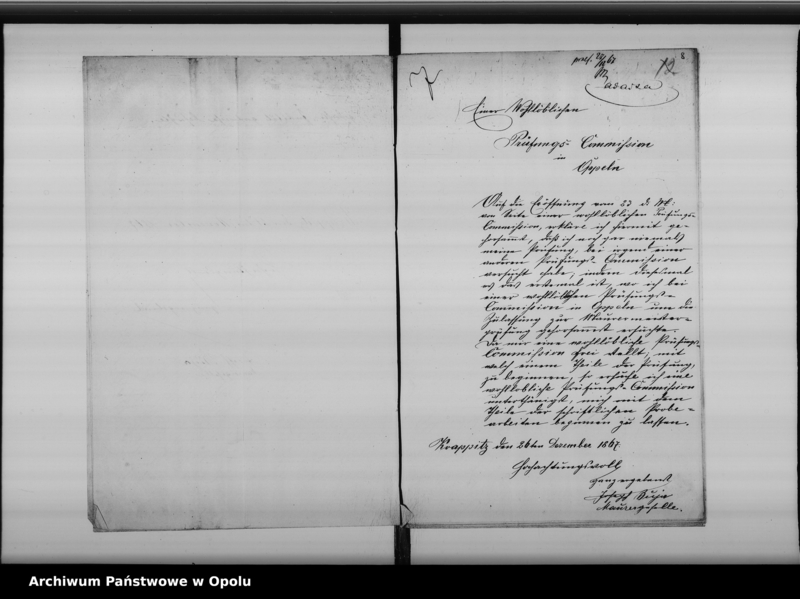 8
12
Einer Wohllöblichen
Prüfungs-Commission
in
Oppeln
Auf die Eröffnung vom 23 d. Mt:
von Seite einer wohllöblichen Prüfungs-
Commission, erkläre ich hiermit ge-
horsamst, daß ich noch gar niemals
meine Prüfung, bei irgend einer
anderen Prüfungs-Commission
versucht habe, indem dieses mal
es das erstemal ist, wo ich bei
einer wohllöblichen Prüfungs-
Commission in Oppeln um die
Zulassung zur Maurermeister-
prüfung gehorsamst ersuchte.
Da mir eine wohllöbliche Prüfungs-
Commission frei stellt, mit
welch einem Theile der Prüfung,
zu beginnen, so ersuche ich eine
wohllobliche Prüfungs-Commission
unterthänigst, mich mit dem
Theile der schriftlichen Probe-
arbeiten beginnen zu lassen.
Krappitz den 26ten Dezember 1867.
Hochachtungsvoll
ganz ergebenst
Joseph
Maurergeselle.
Archiwum Państwowe w Opolu